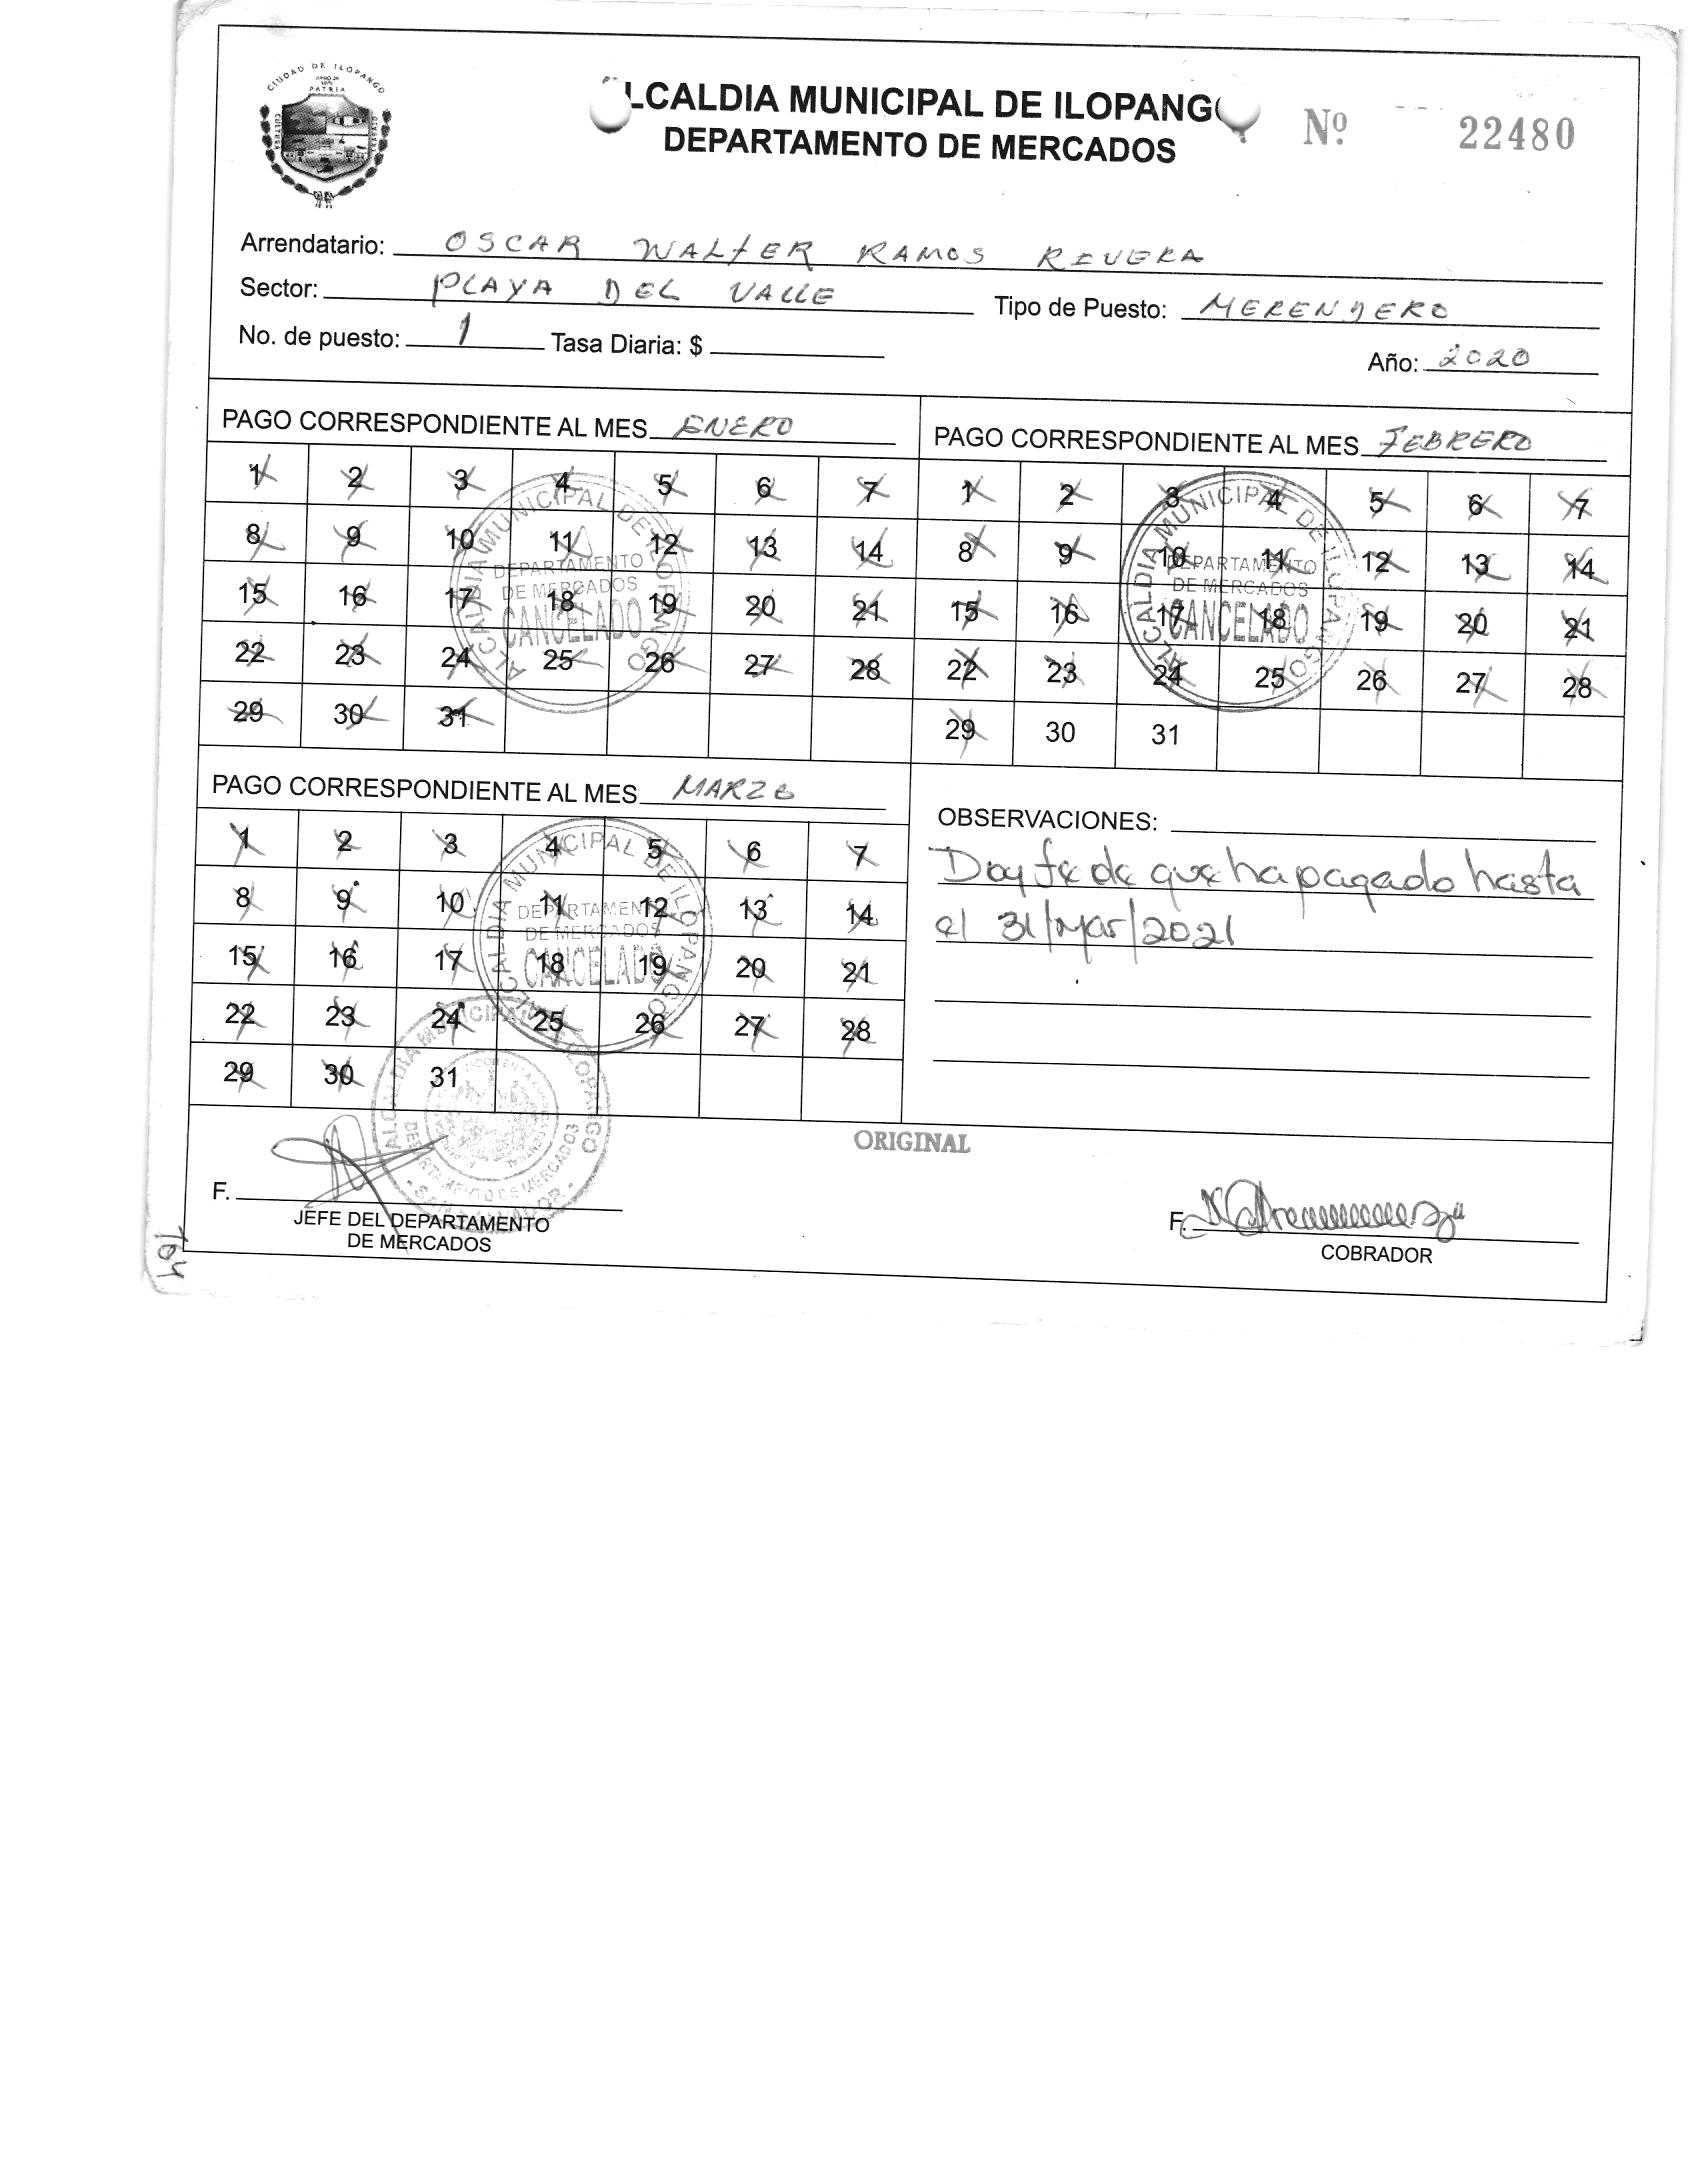 CIUDAD DE ILOPANGO
PATRIA
CULTURA
TRABAJO
LCALDIA MUNICIPAL DE ILOPANGO
DEPARTAMENTO DE MERCADOS
Nº 22480
Arrendatario: OSCAR WALTER RAMOS RIVERA
Sector: PLAYA DEL VALLE Tipo de Puesto: MERENDERO
No. de puesto: 1 Tasa Diaria: $
Año: 2020
PAGO CORRESPONDIENTE AL MES ENERO
1 2 3 4 5 6 7
8 9 10 11 12 13 14
15 16 17 18 19 20 21
22 23 24 25 26 27 28
29 30 31
ALCALDIA MUNICIPAL DE ILOPANGO
DEPARTAMENTO
DE MERCADOS
CANCELADO
PAGO CORRESPONDIENTE AL MES FEBRERO
1 2 3 4 5 6 7
8 9 10 11 12 13 14
15 16 17 18 19 20 21
22 23 24 25 26 27 28
29 30 31
ALCALDIA MUNICIPAL DE ILOPANGO
DEPARTAMENTO
DE MERCADOS
CANCELADO
PAGO CORRESPONDIENTE AL MES MARZO
1 2 3 4 5 6 7
8 9 10 11 12 13 14
15 16 17 18 19 20 21
22 23 24 25 26 27 28
29 30 31
ALCALDIA MUNICIPAL DE ILOPANGO
DEPARTAMENTO
DE MERCADOS
CANCELADO
OBSERVACIONES:
Doy fe de que ha pagado hasta
el 31/Mar/2021
ALCALDIA MUNICIPAL DE ILOPANGO
DEPARTAMENTO DE MERCADOS
SAN SALVADOR
ORIGINAL
F.
JEFE DEL DEPARTAMENTO
DE MERCADOS
F.
COBRADOR